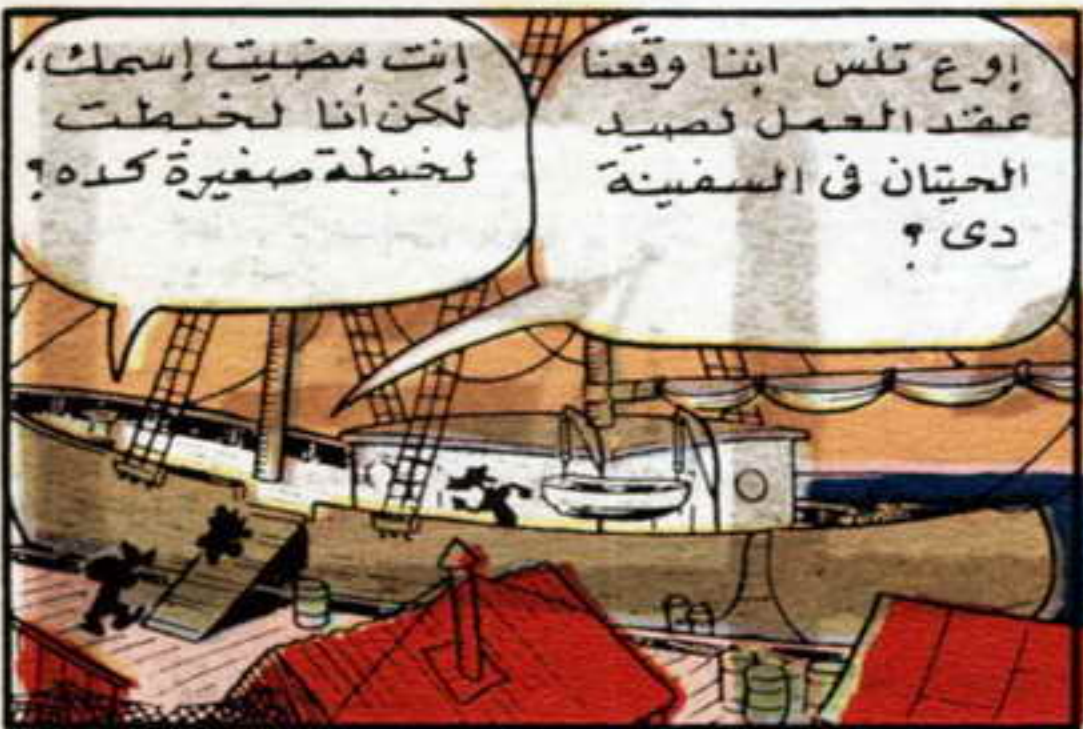 إوع تنس اننا وقعنا
عقد العمل لصيد
الحيتان فى السفينة
دى ؟
إنت مضيت إسمك،
لكن أنا لخبطت
لخبطة صغيرة كده؟